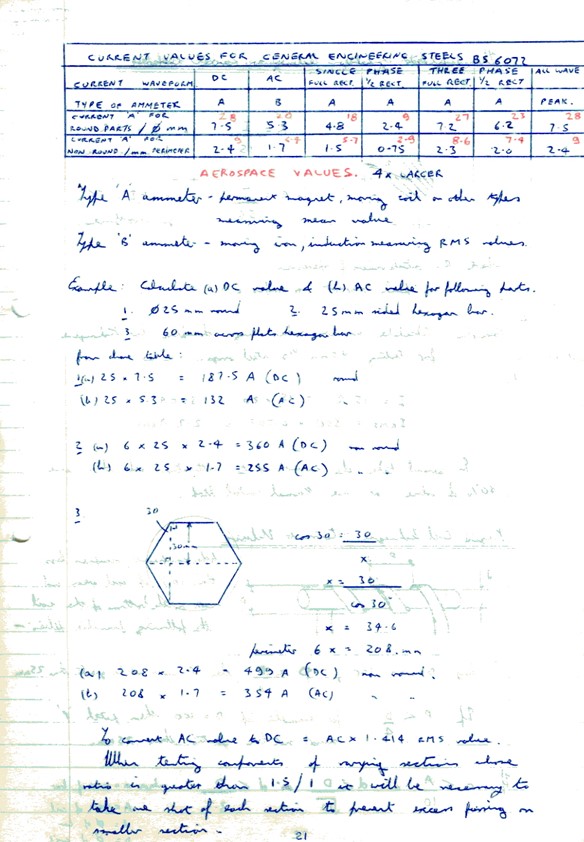 CURRENT VALUES FOR GENERAL ENGINEERING STEELS BS 6072
CURRENT WAVEFORM DC AC SINGLE PHASE FULL RECT. ½ RECT. THREE PHASE FULL RECT ½ RECT ALL WAVE
TYPE OF AMMETER A B A A A A PEAK.
CURRENT 'A' FOR 28 20 18 9 27 23 28
ROUND PARTS / Ø mm 7.5 5.3 4.8 2.4 7.2 6.2 7.5
CURRENT 'A' FOR 9 5.7 2.9 8.6 7.4 9
NON ROUND / mm PERIMETER 2.4 1.7 1.5 0.75 2.3 2.0 2.4
AEROSPACE VALUES. 4x LARGER
Type 'A' ammeter - permanent magnet, moving coil or other types
measuring mean value
Type 'B' ammeter - moving iron, induction measuring RMS values.
Example: Calculate (a) DC value & (b) AC value for following parts.
1. Ø25 mm round 2. 25 mm sided hexagon bar.
3 60 mm across flats hexagon bar
from above table:
1(a) 25 x 7.5 = 187.5 A (DC) round
(b) 25 x 5.3 = 132 A (AC) "
2 (a) 6 x 25 x 2.4 = 360 A (DC) non round
(b) 6 x 25 x 1.7 = 255 A (AC) " "
3 30
30
cos 30 = 30
x
x = 30
cos 30
x = 34.6
perimeter 6 x = 208 mm
(a) 208 x 2.4 = 499 A (DC) non round.
(b) 208 x 1.7 = 354 A (AC) " "
To convert AC value to DC = AC x 1.414 RMS value.
When testing components of varying sections whose
ratio is greater than 1.5/1 it will be necessary to
take one shot of each section to prevent excess passing on
smaller section.
21